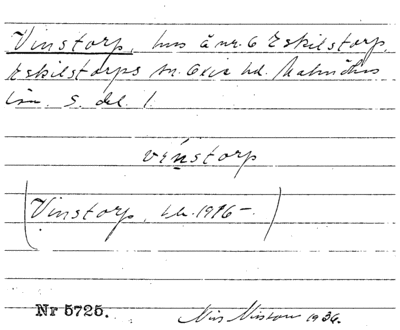 Vinstorp, hus å nr. 6 Eskilstorp,
Eskilstorps sn. Oxie hd. Malmöhus
län. S. del.
vinstorp
(Vinstorp, 1916-.)
Nr 5725.
Nils Nilsson 1936.